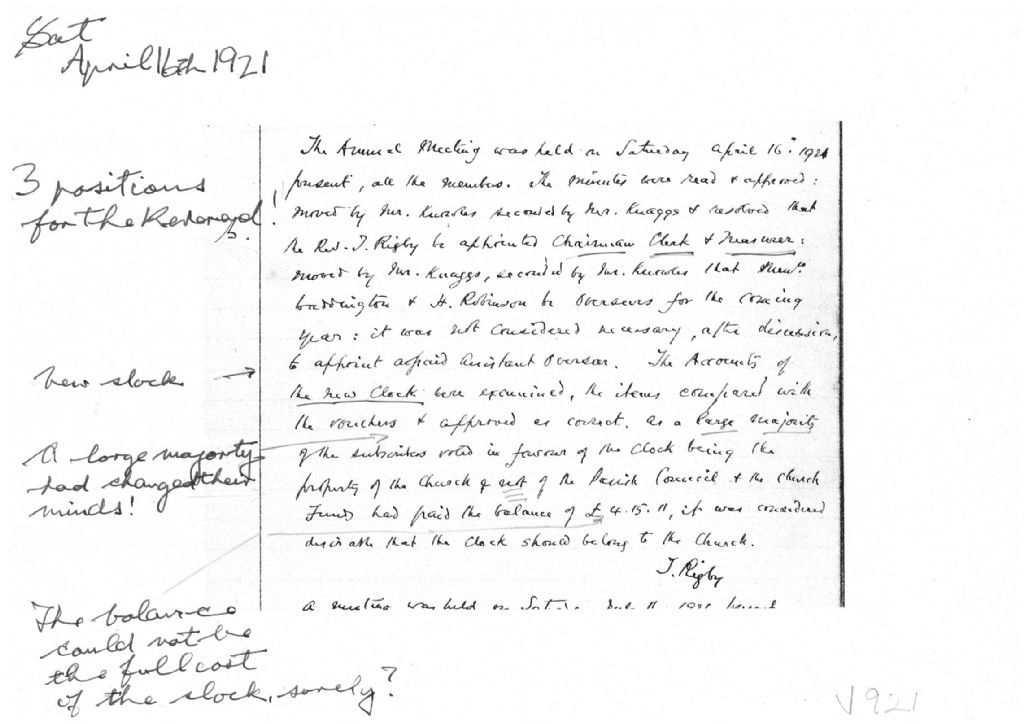 Sat
April 16th 1921
3 positions
for the Reverend!
New clock →
A large majority
had changed their
minds!
The balance
could not be
the full cost
of the clock, surely?
The Annual Meeting was held on Saturday April 16th. 1921
present, all the members. The minutes were read & approved:
moved by Mr. Knowles seconded by Mr. Knaggs & resolved that
the Rev. J. Rigby be appointed Chairman Clerk & Treasurer:
moved by Mr. Knaggs, seconded by Mr. Knowles that
Waddington & H. Robinson be Overseers for the coming
year: it was not considered necessary, after discussion,
to appoint a paid Assistant Overseer. The Accounts of
the new Clock were examined, the items compared with
the vouchers & approved as correct. As a large majority
of the subscribers voted in favour of the Clock being the
property of the Church & not of the Parish Council & the Church
Funds had paid the balance of £4.15.11, it was considered
desirable that the Clock should belong to the Church.
J. Rigby
A meeting was held on Sat.
1921